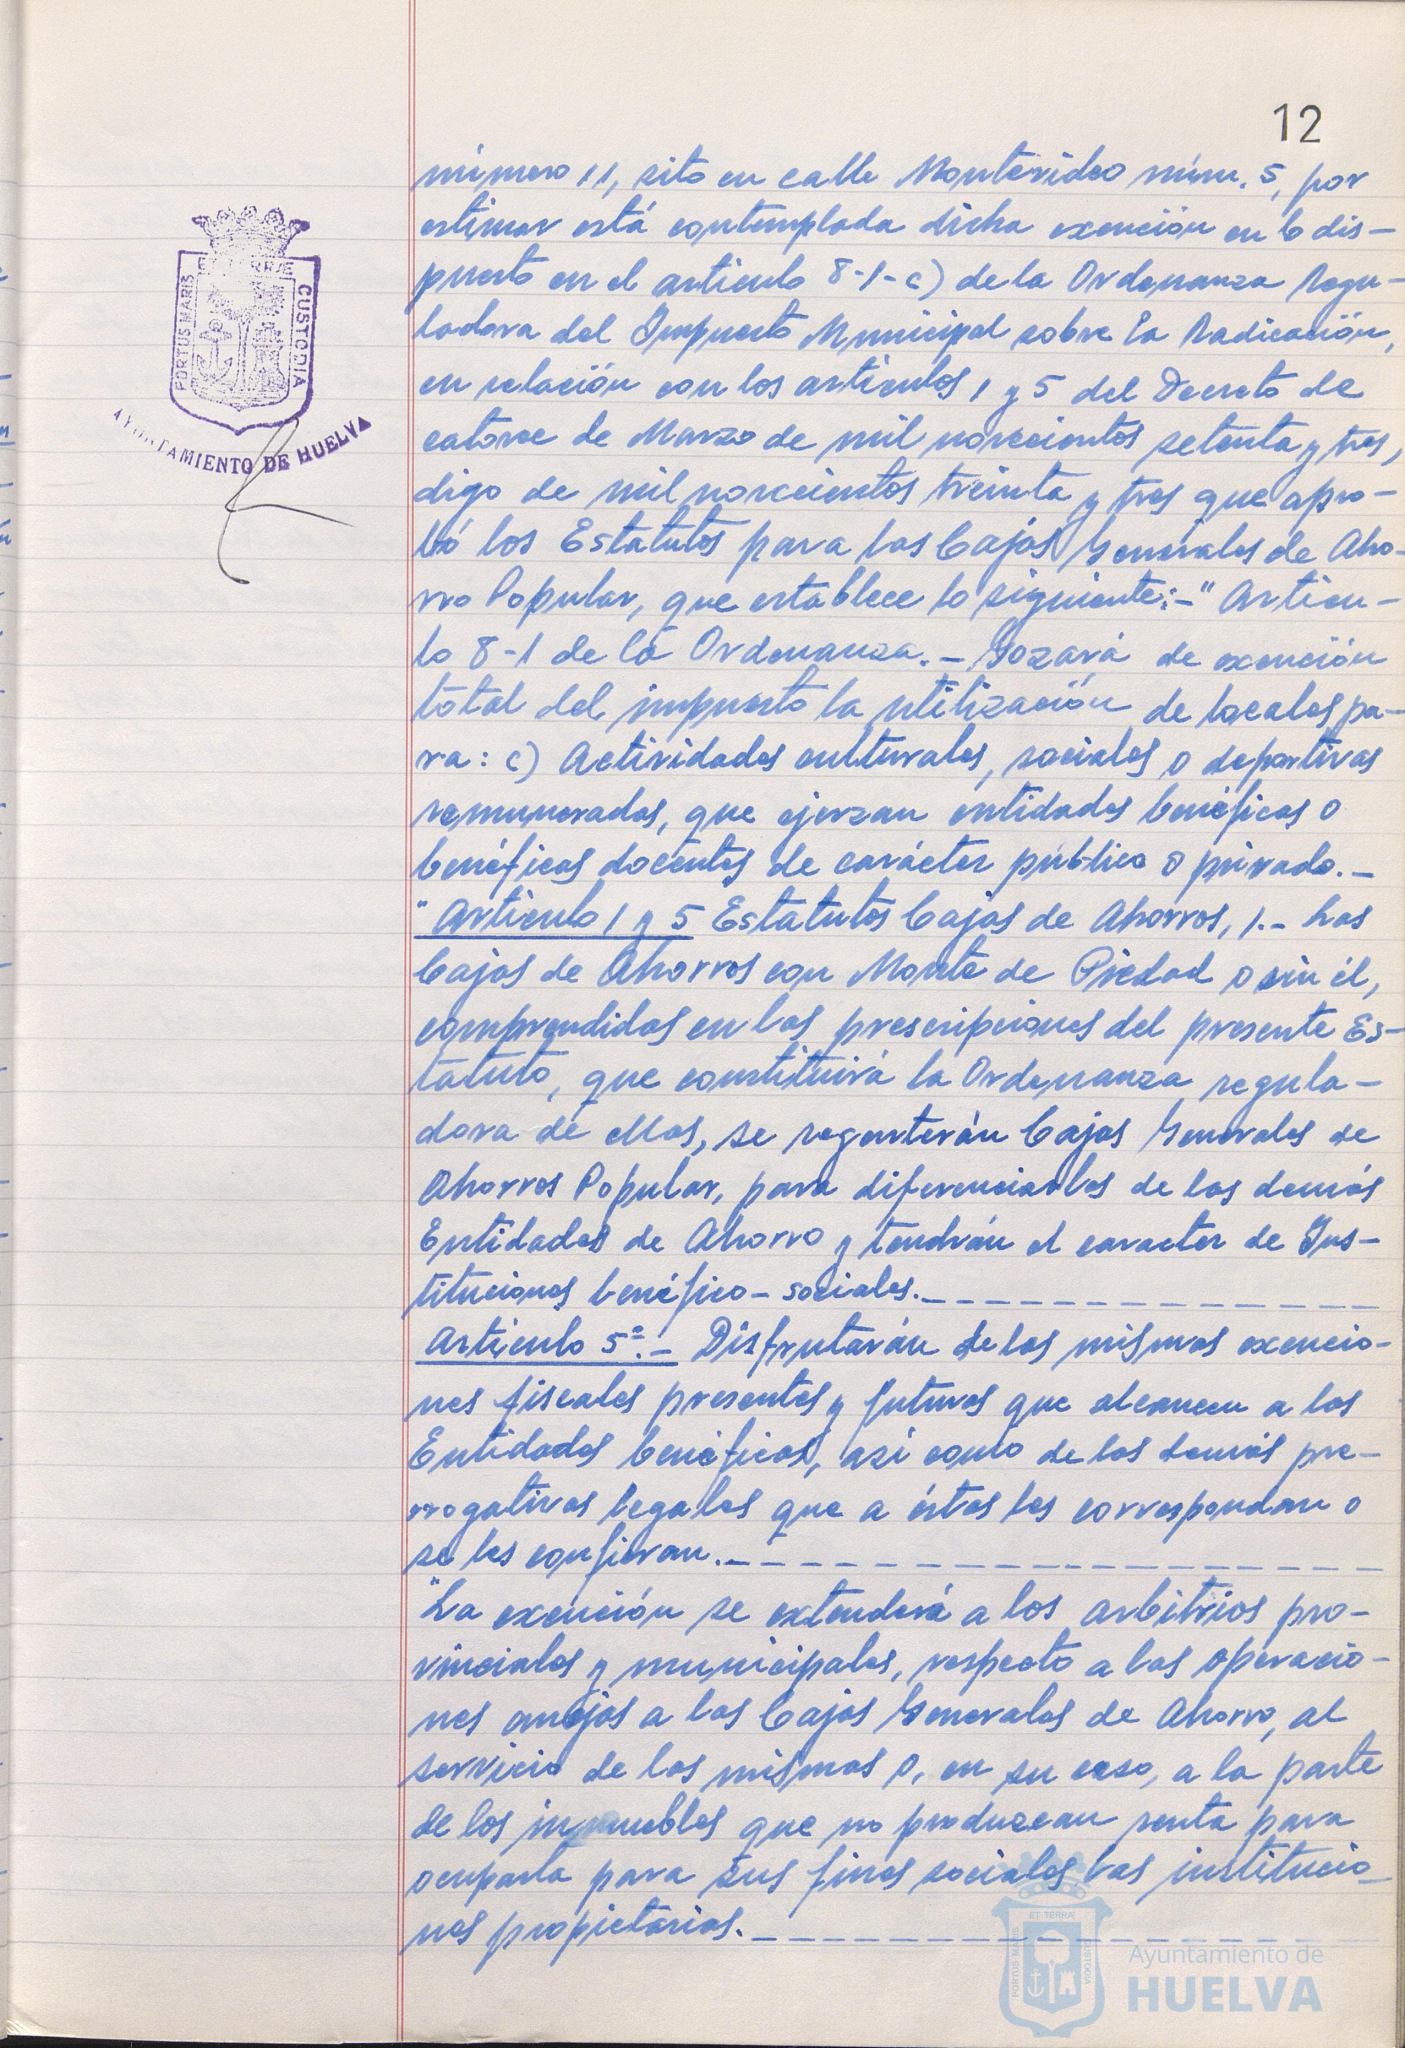 12
número 11, sito en calle Montevideo núm. 5, por
estimar está contemplada dicha exención en lo dis-
puesto en el artículo 8-1-c) de la Ordenanza Regu-
ladora del Impuesto Municipal sobre la Radicación,
en relación con los artículos 1 y 5 del Decreto de
catorce de Marzo de mil novecientos setenta y tres,
digo de mil novecientos treinta y tres que apro-
bó los Estatutos para las Cajas Generales de Aho-
rro Popular, que establece lo siguiente:-" Artícu-
lo 8-1 de la Ordenanza.- Gozará de exención
total del impuesto la utilización de locales pa-
ra: c) Actividades culturales, sociales o deportivas
remuneradas, que ejerzan entidades benéficas o
benéficas docentes de carácter público o privado.-
"Artículo 1 y 5 Estatutos Cajas de Ahorros, 1.- Las
Cajas de Ahorros con Monte de Piedad o sin él,
comprendidas en las prescripciones del presente Es-
tatuto, que constituirá la Ordenanza regula-
dora de ellas, se regentarán Cajas Generales de
Ahorros Popular, para diferenciarlas de las demás
Entidades de Ahorro y tendrán el caracter de Ins-
tituciones benéfico-sociales.-
Artículo 5º.- Disfrutarán de las mismas exencio-
nes fiscales presentes y futuras que alcancen a las
Entidades benéficas, asi como de las demás pre-
rrogativas legales que a éstas les correspondan o
se les confieran.-
"La exención se extenderá a los arbitrios pro-
vinciales y municipales, respecto a las operacio-
nes anejas a las Cajas Generales de Ahorro, al
servicio de las mismas o, en su caso, a la parte
de los inmuebles que no produzcan renta para
ocuparla para sus fines sociales las institucio-
nes propietarias.-
PORTUS MARIS ET TERRÆ CUSTODIA
AYUNTAMIENTO DE HUELVA
PORTUS MARIS ET TERRÆ CUSTODIA
Ayuntamiento de
HUELVA